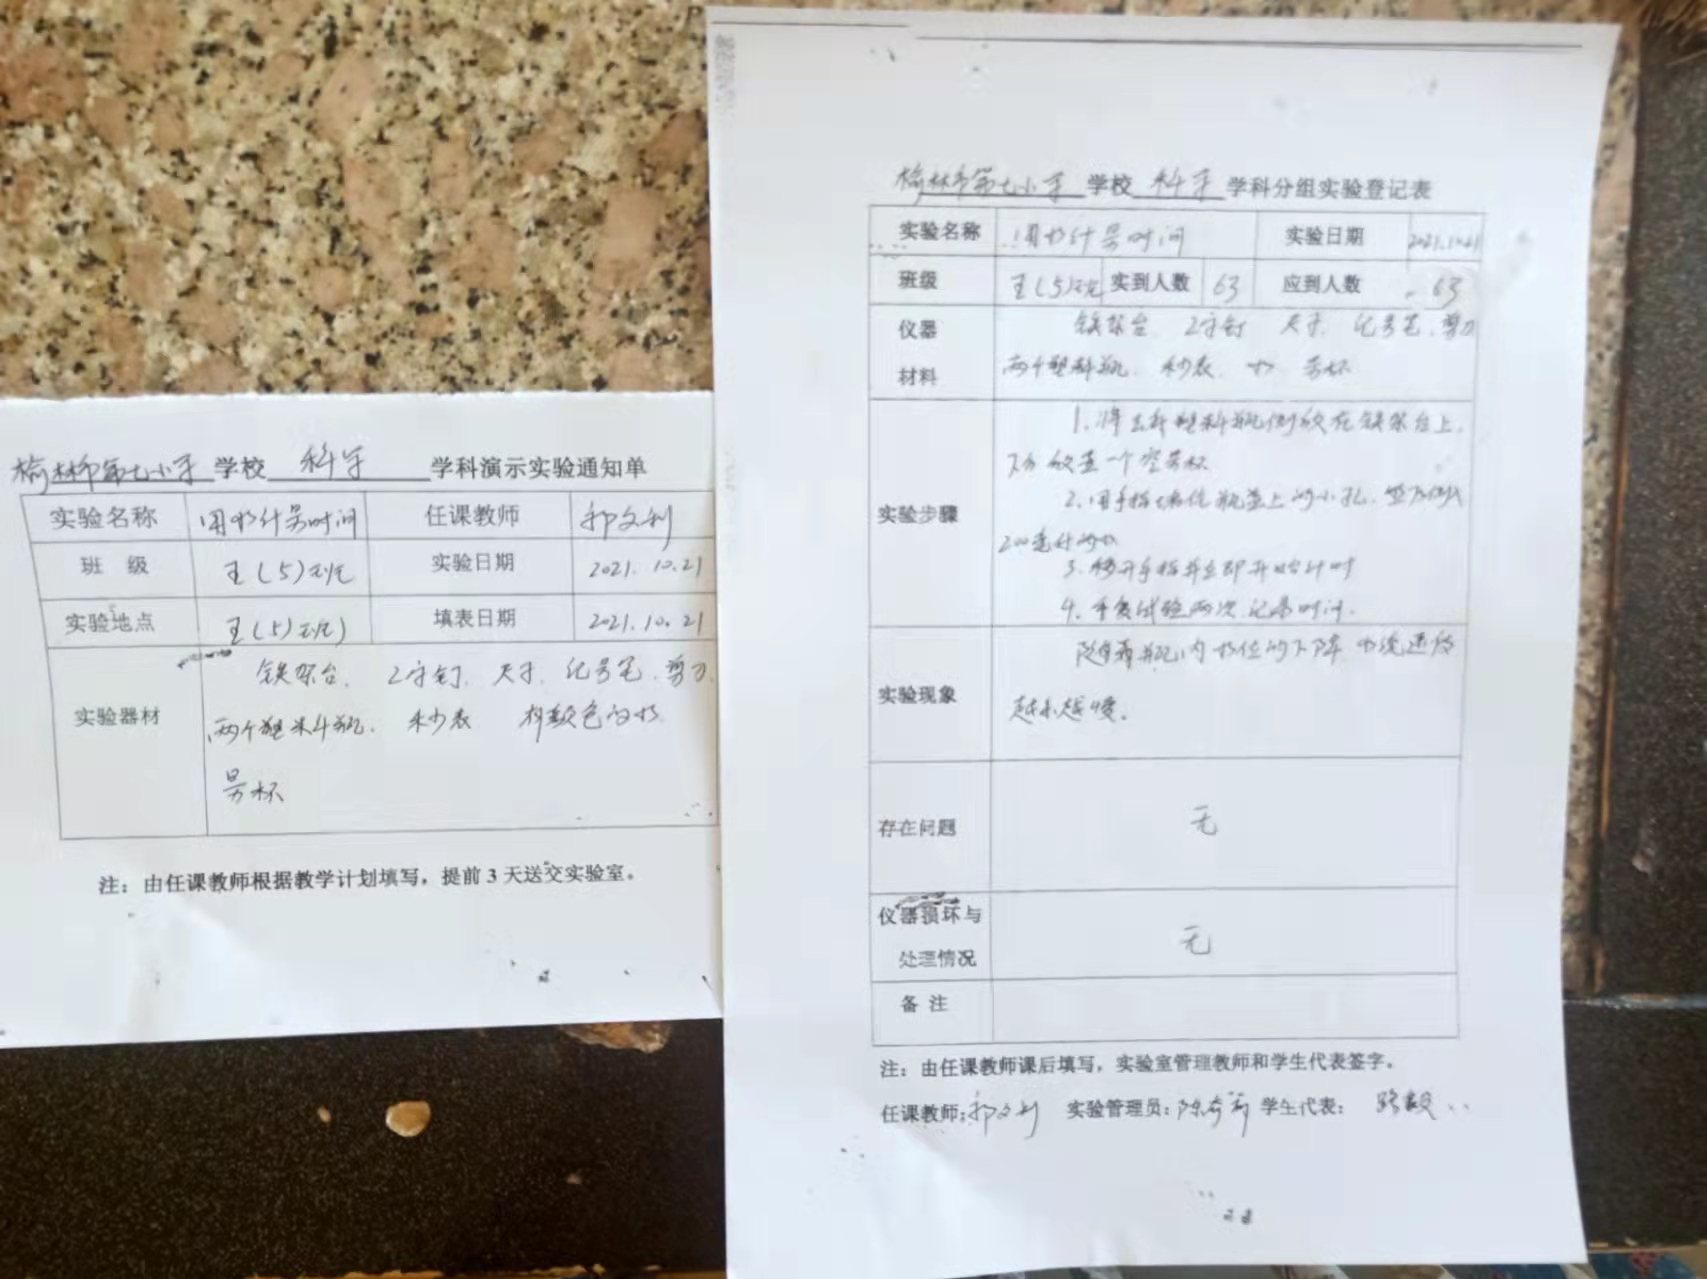 榆林市第七小学 学校 科学 学科演示实验通知单
实验名称 用水计量时间 任课教师 郭文利
班 级 五(5)班 实验日期 2021.10.21
实验地点 五(5)班 填表日期 2021.10.21
实验器材 铁架台、工字钉、尺子、记号笔、剪刀、
两个塑料瓶、秒表 有颜色的水
量杯
注：由任课教师根据教学计划填写，提前3天送交实验室。
榆林市第七小学 学校 科学 学科分组实验登记表
实验名称 用水计量时间 实验日期 2021.10.21
班级 五(5)班 实到人数 63 应到人数 63
仪器 铁架台、工字钉 尺子、记号笔、剪刀
材料 两个塑料瓶、秒表、水 量杯
实验步骤
1、将去底塑料瓶倒放在铁架台上，
下方放置一个空量杯
2、用手指堵住瓶盖上的小孔，
200毫升的水
3、移开手指并立即开始计时
4、重复试验两次，记录时间。
实验现象 随着瓶内水位的下降，水流速度
越来越慢。
存在问题 无
仪器损坏与
处理情况 无
备 注
注：由任课教师课后填写，实验室管理教师和学生代表签字。
任课教师：郭文利 实验管理员： 学生代表：